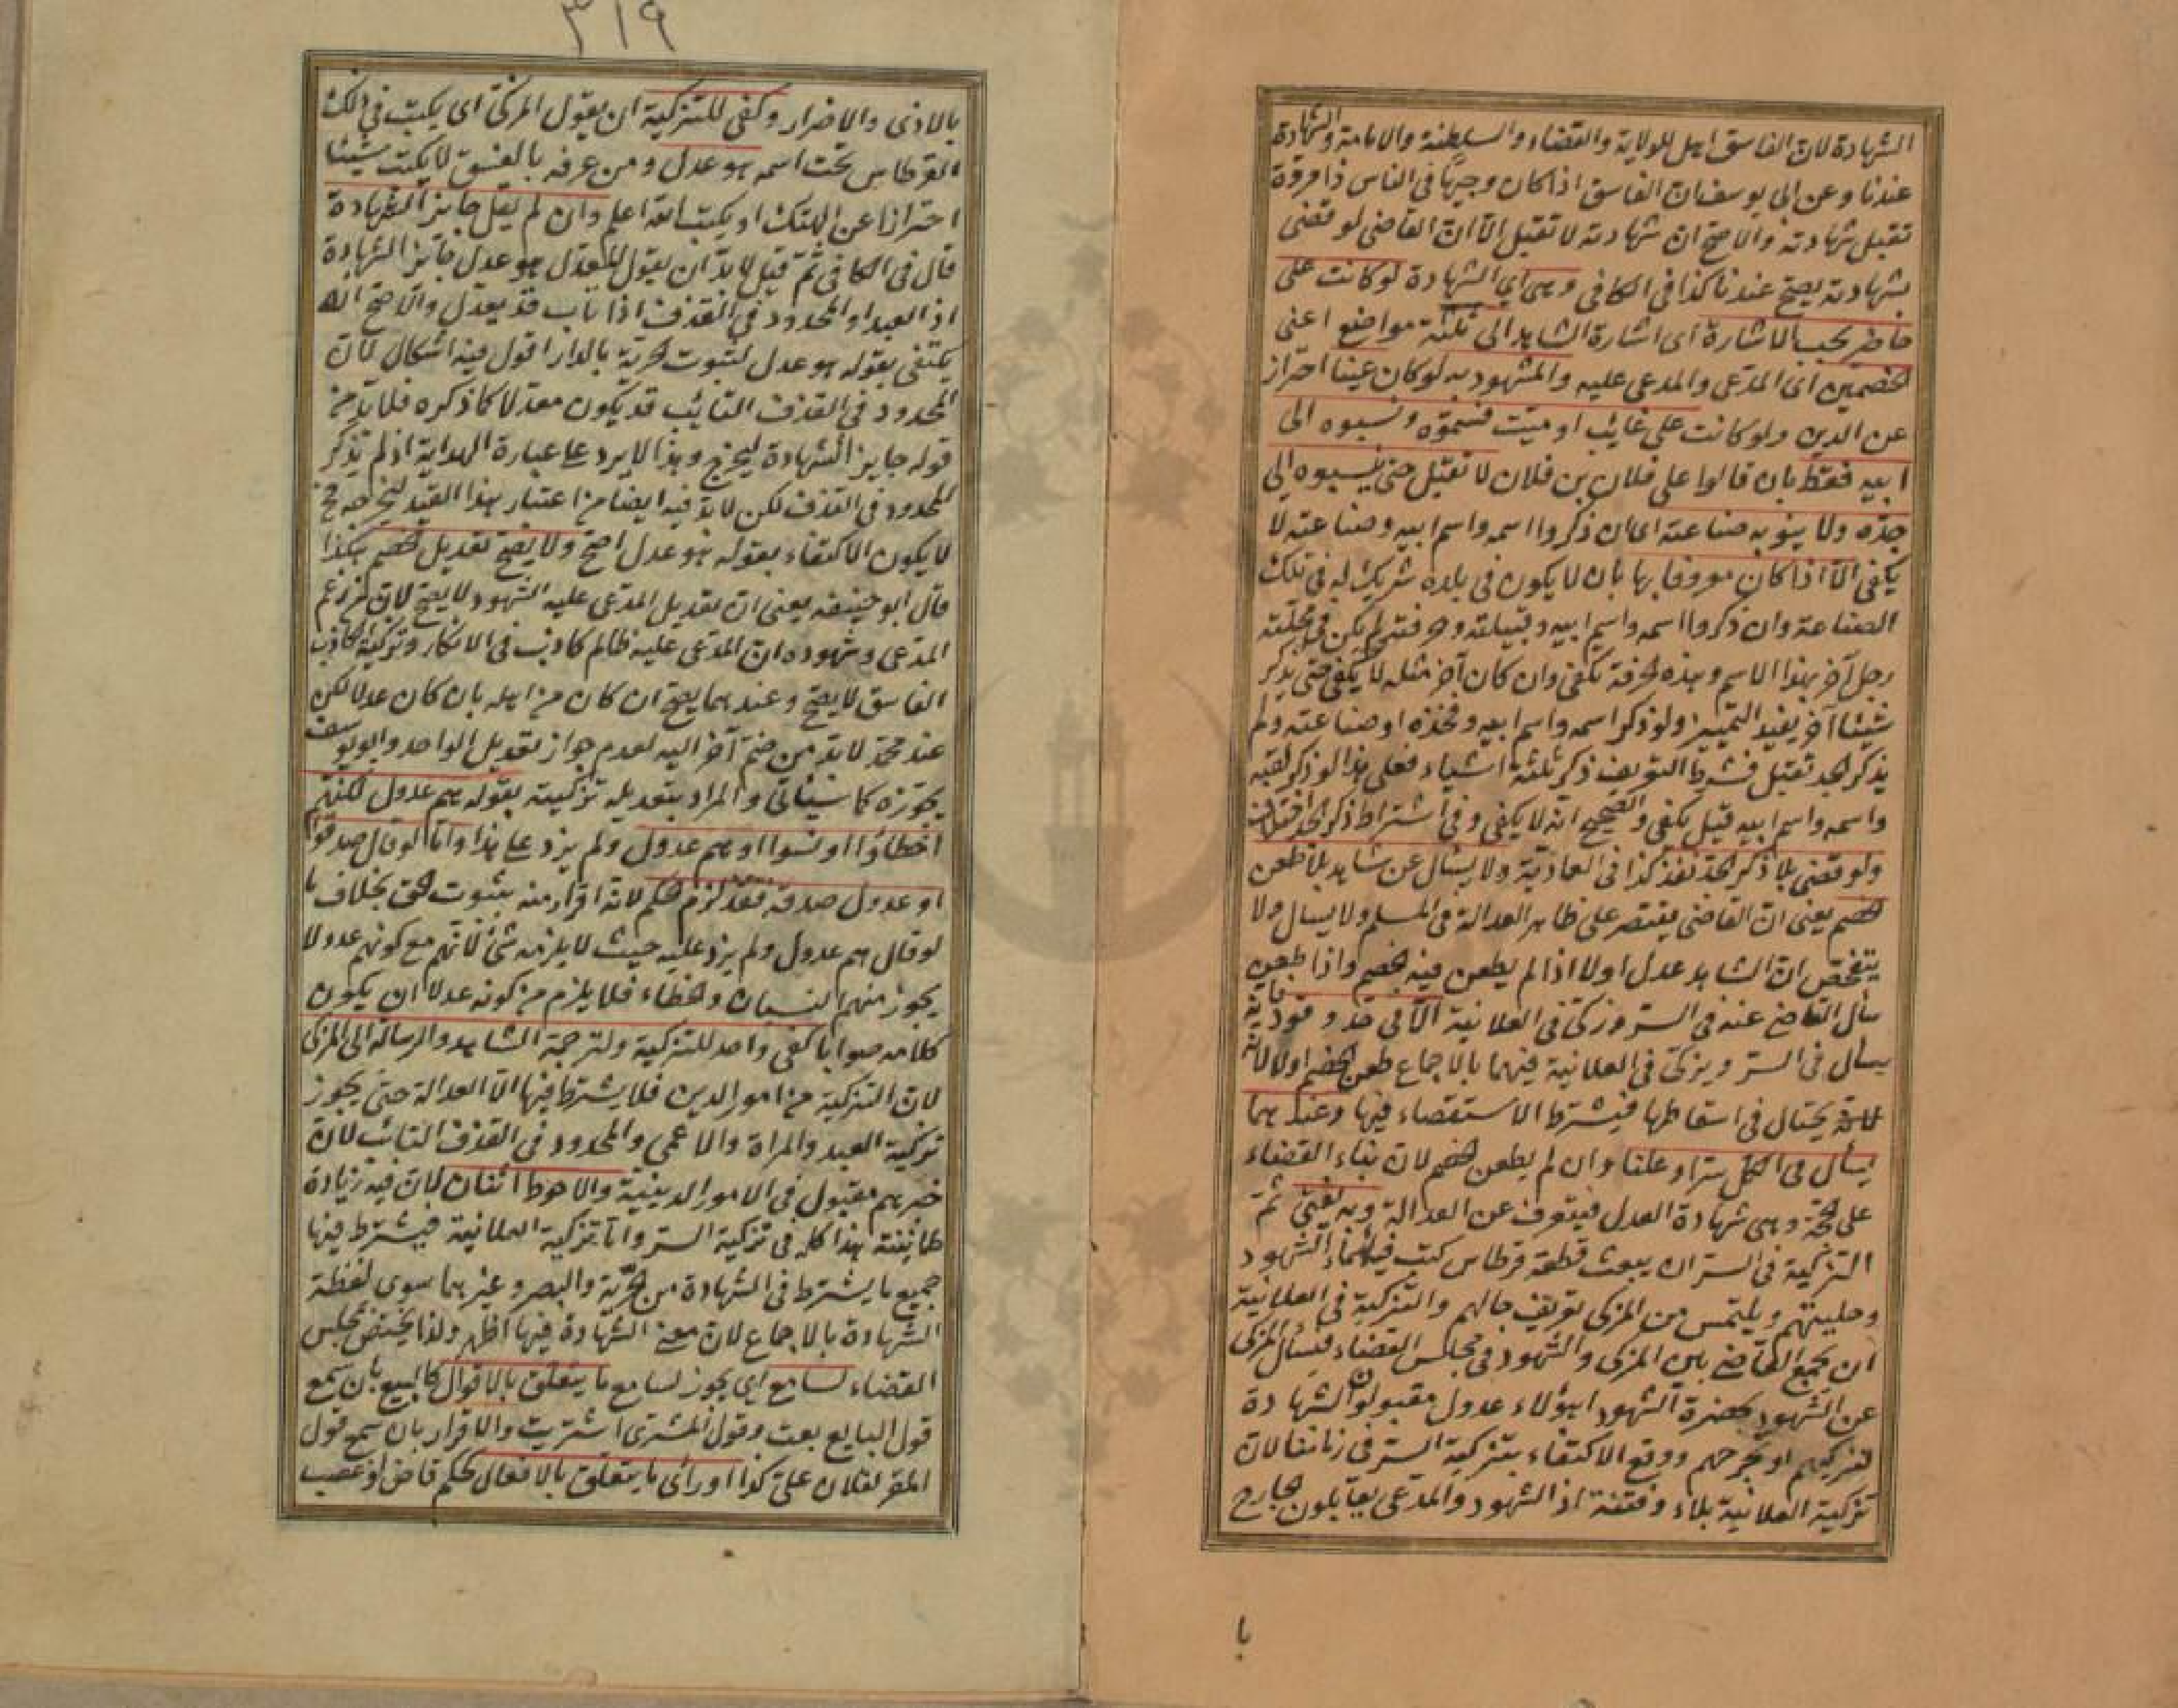 الشهادة لان الفاسق اهل للولاية والقضاء والسلطنة والامامة والشهادة
عندنا وعن ابى يوسف ان الفاسق اذا كان وجيها فى الناس ذا مروة
تقبل شهادته والاصح ان شهادته لا تقبل الا ان القاضى لو قضى
بشهادته يصح عندنا كذا فى الكافى وهى اى الشهادة لو كانت على
حاضر يجب الاشارة اى اشارة الشاهد الى ثلثة مواضع اعنى
الخصمين اى المدعى والمدعى عليه والمشهود به لو كان عينا احتراز
عن الدين ولو كانت على غائب او ميت فسموه ونسبوه الى
ابيه فقط بان قالوا على فلان بن فلان لا تقبل حتى ينسبوه الى
جده ولا ينوبه صناعته اى ان ذكروا اسمه واسم ابيه وصناعته لا
يكفى الا اذا كان معروفا بها بان لا يكون فى بلده شريك له فى تلك
الصناعة وان ذكروا اسمه واسم ابيه وقبيلته وحرفته ولم يكن فى محلته
رجل آخر بهذا الاسم وبهذه الحرفة تكفى وان كان آخر مثله لا يكفى حتى يذكر
شيئا آخر يفيد التمييز ولو ذكر اسمه واسم ابيه وفخذه او صناعته ولم
يذكر الجد تقبل فشرط التعريف ذكر ثلثة اشياء فعلى هذا لو ذكر لقبه
واسمه واسم ابيه قيل يكفى والصحيح انه لا يكفى وفى اشتراط ذكر الجد اختلاف
ولو قضى بلا ذكر الجد نفذ كذا فى العمادية ولا يسأل عن شاهد بلا طعن
الخصم يعنى ان القاضى يقتصر على ظاهر العدالة فى المسلم ولا يسأل ولا
يتفحص ان الشاهد عدل اولا اذا لم يطعن فيه الخصم واذا طعن
سأل القاضى عنه فى السر وزكى فى العلانية الا فى حد وقود فانه
يسأل فى السر ويزكى فى العلانية فيهما بالاجماع طعن الخصم اولا لانه
يحتال فى اسقاطها فيشترط الاستقصاء فيها وعندهما
يسأل فى الكل سرا وعلنا وان لم يطعن الخصم لان بناء القضاء
على الحجة وهى شهادة العدل فيتعرف عن العدالة وبه يفتى ثم
التزكية فى السر ان يبعث قطعة قرطاس كتب فيها اسماء الشهود
وحليتهم ويلتمس من المزكى تعريف حالهم والتزكية فى العلانية
ان يجمع القاضى بين المزكى والشهود فى مجلس القضاء فيسأل المزكى
عن الشهود بحضرة الشهود اهؤلاء عدول مقبولوا الشهادة
لتزكيهم او تجرحهم ووقع الاكتفاء بتزكية السر فى زماننا لان
تزكية العلانية بلاء وفتنة اذ الشهود والمدعى يقابلون الجارح
با
٣١٩
بالاذى والاضرار وكفى للتزكية ان يقول المزكى اى يكتب فى ذلك
القرطاس تحت اسمه هو عدل ومن عرفه بالفسق لا يكتب شيئا
احترازا عن الهتك او يكتب الله اعلم وان لم يقل جايز الشهادة
قال فى الكافى ثم قيل لا بد ان يقول المعدل هو عدل جايز الشهادة
اذ العبد او المحدود فى القذف اذا تاب قد يعدل والاصح انه
يكتفى بقوله هو عدل لثبوت الحرية بالدار اقول فيه اشكال لان
المحدود فى القذف التائب قد يكون معدلا كما ذكره فلا بد من
قوله جايز الشهادة ليخرج وهذا لا يرد على عبارة الهداية اذ لم يذكر
المحدود فى القذف لكن لا بد فيه ايضا من اعتبار هذا القيد ليخرجه
لا يكون الاكتفاء بقوله هو عدل اصح ولا يصح تعديل الخصم هكذا
قال ابو حنيفه يعنى ان تعديل المدعى عليه الشهود لا يصح لان من زعم
المدعى وشهوده ان المدعى عليه ظالم كاذب فى الانكار وتزكية الكاذب
الفاسق لا يصح وعندهما يصح ان كان من اهله بان كان عدلا لكن
عند محمد لا بد من ضم آخر اليه لعدم جواز تعديل الواحد وابو يوسف
يجوزه كما سيأتى والمراد بتعديله تزكيته بقوله هم عدول لكنهم
اخطأوا او نسوا او هم عدول ولم يزد على هذا واما لو قال صدقوا
او عدول صدقة فقد لزم الحكم لانه اقرار منه بثبوت الحق بخلاف ما
لو قال هم عدول ولم يزد عليه حيث لا يلزمه شئ لانهم مع كونهم عدولا
يجوز منهم النسيان والخطاء فلا يلزم من كونه عدلا ان يكون
كلامه صوابا كفى واحد للتزكية ولترجمة الشاهد والرسالة الى المزكى
لان التزكية من امور الدين فلا يشترط فيها الا العدالة حتى يجوز
تزكية العبد والمراة والاعمى والمحدود فى القذف التائب لان
خبرهم مقبول فى الامور الدينية والاحوط اثنان لان فيه زيادة
طمانينة هذا كله فى تزكية السر واما تزكية العلانية فيشترط فيها
جميع ما يشترط فى الشهادة من الحرية والبصر وغيرهما سوى لفظة
الشهادة بالاجماع لان معنى الشهادة فيها اظهر ولذا يختص بمجلس
القضاء لسامع اى يجوز لسامع ما يتعلق بالاقوال كالبيع بان سمع
قول البايع بعت وقول المشترى اشتريت والاقرار بان سمع قول
المقر لفلان على كذا او راى ما يتعلق بالافعال كحكم قاض او غصب